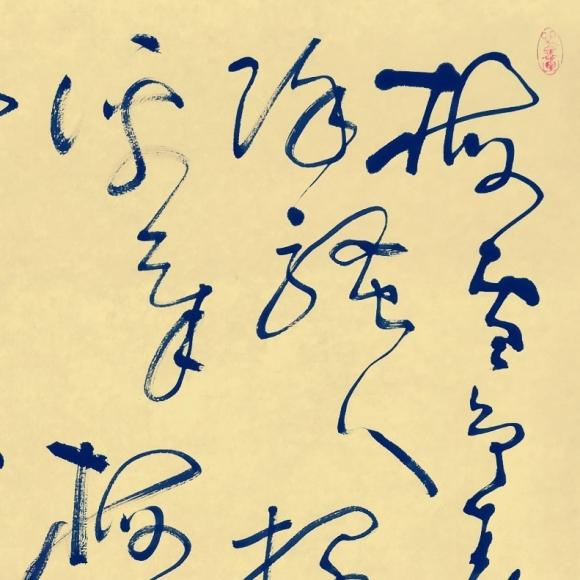 梅雪争春
降骚人
评章梅